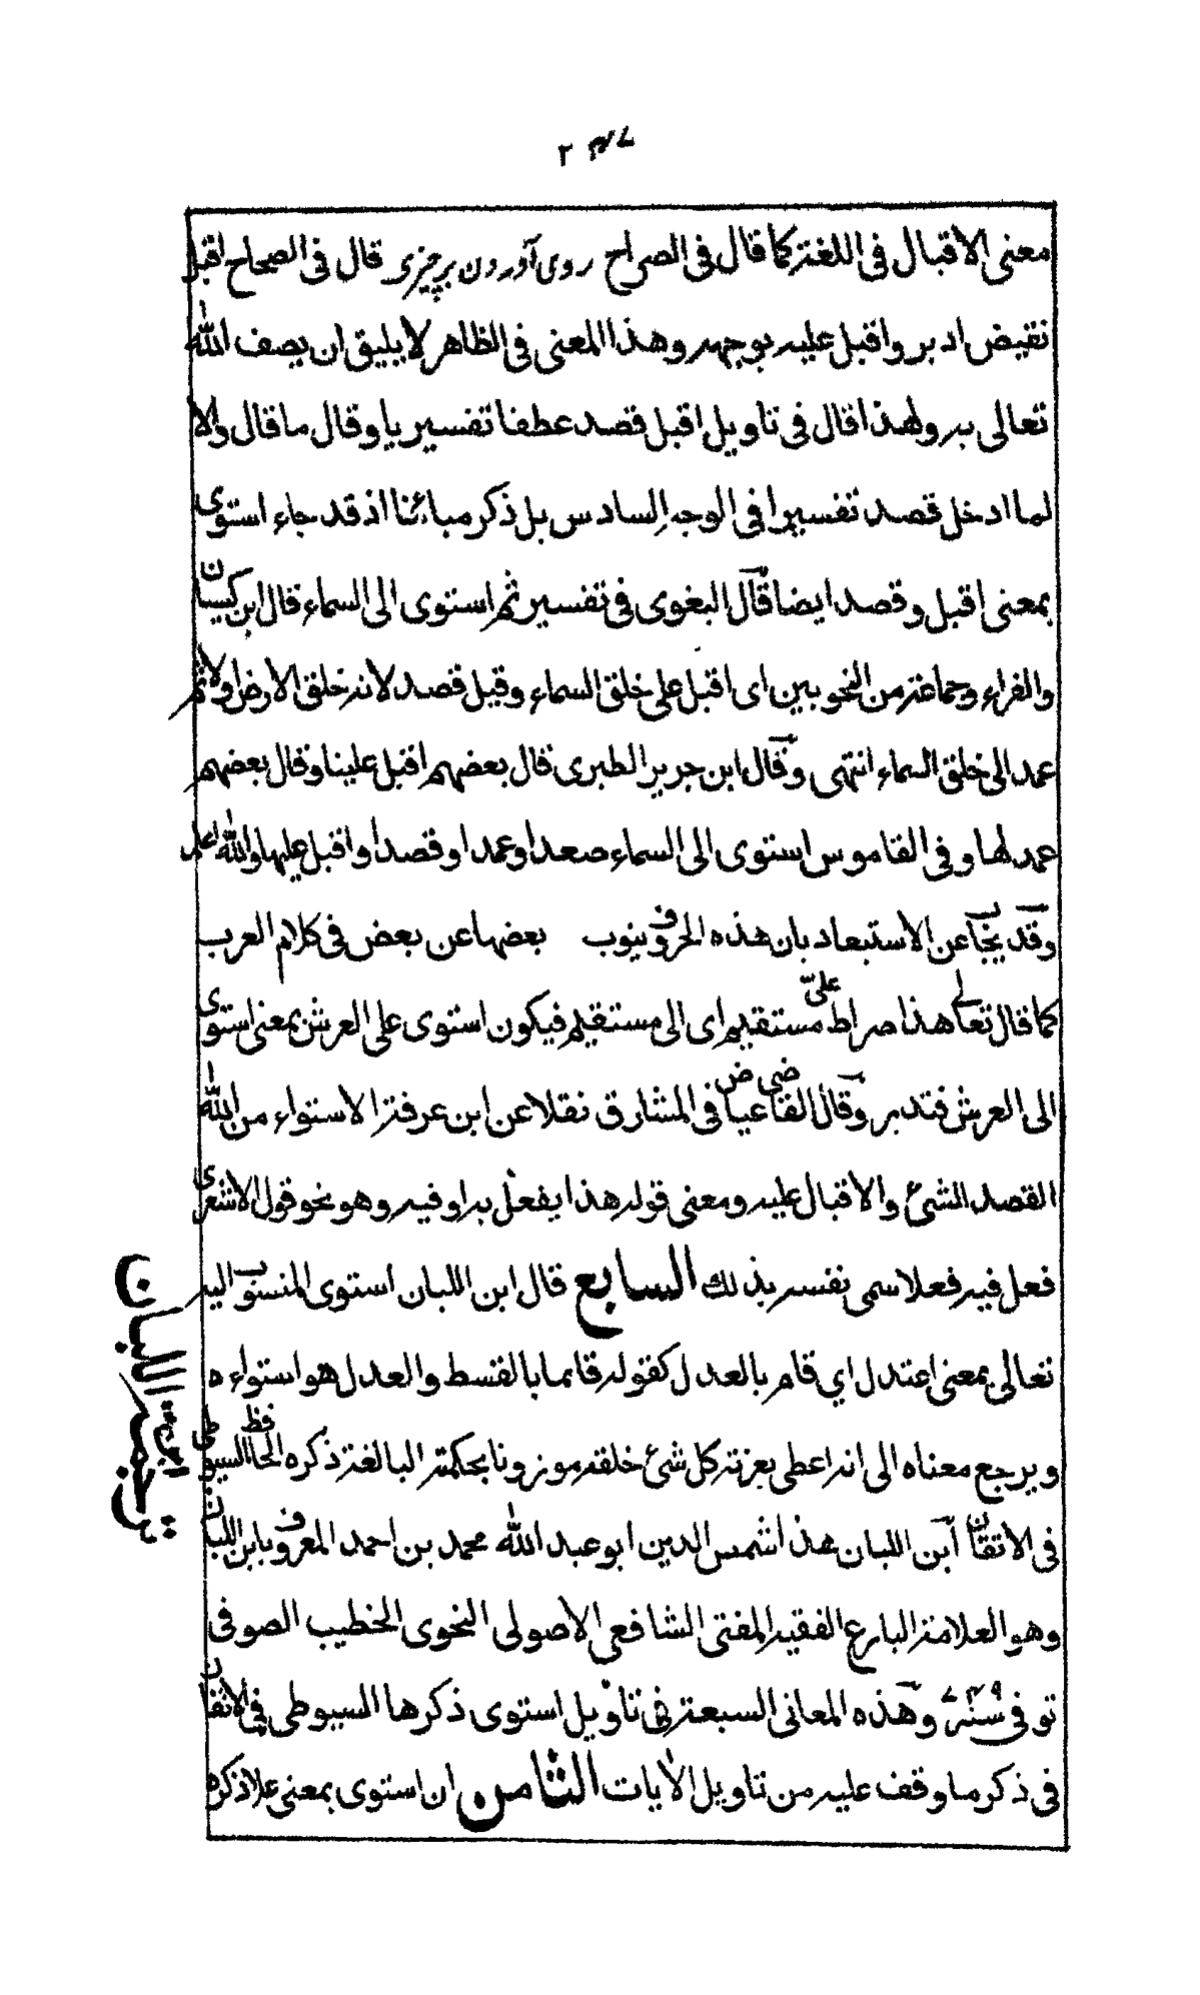 ٢٤٧
معنى الاقبال فى اللغة كما قال فى الصراح روى آوردن بر چيزى قال فى الصحاح اقبل
نقيض ادبر واقبل عليه بوجهه وهذا المعنى فى الظاهر لا يليق ان يصف الله
تعالى به ولهذا قال فى تاويل اقبل قصد عطفا تفسيريا وقال ما قال والا
لما ادخل قصد تفسيرا فى الوجه السادس بل ذكر مبائنا اذ قد جاء استوى
بمعنى اقبل وقصد ايضا قال البغوى فى تفسيره ثم استوى الى السماء قال ابن كيسان
والفراء وجماعة من النحويين اى اقبل على خلق السماء وقيل قصد لانه خلق الارض اولا ثم
عمد الى خلق السماء انتهى وقال ابن جرير الطبرى قال بعضهم اقبل علينا وقال بعضهم
عمد لها وفى القاموس استوى الى السماء صعد او عمد او قصد او اقبل عليها والله اعلم
وقد يجاب عن الاستبعاد بان هذه الحروف ينوب بعضها عن بعض فى كلام العرب
كما قال تعالى هذا صراط علىّ مستقيم اى الى مستقيم فيكون استوى على العرش بمعنى استوى
الى العرش فتدبر وقال القاضى عياض فى المشارق نقلا عن ابن عرفة الاستواء من الله
القصد للشئ والاقبال عليه ومعنى قوله هذا يفعل به او فيه وهو نحو قول الاشعرى
فعل فيه فعلا سمى نفسه بذلك السابع قال ابن اللبان استوى المنسوب اليه
تعالى بمعنى اعتدل اي قام بالعدل كقوله قائما بالقسط والعدل هو استواءه
ويرجع معناه الى انه اعطى بعزته كل شئ خلقه موزونا بحكمته البالغة ذكره الحافظ السيوطى
فى الاتقان ابن اللبان هذا شمس الدين ابو عبد الله محمد بن احمد المعروف بابن اللبان
وهو العلامة البارع الفقيه المفتى الشافعى الاصولى النحوى الخطيب الصوفى
توفى سنة ٧٤٩ وهذه المعانى السبعة فى تاويل استوى ذكرها السيوطى فى الاتقان
فى ذكر ما وقف عليه من تاويل الأيات الثامن ان استوى بمعنى علا ذكره
ترجمة ابن اللبان